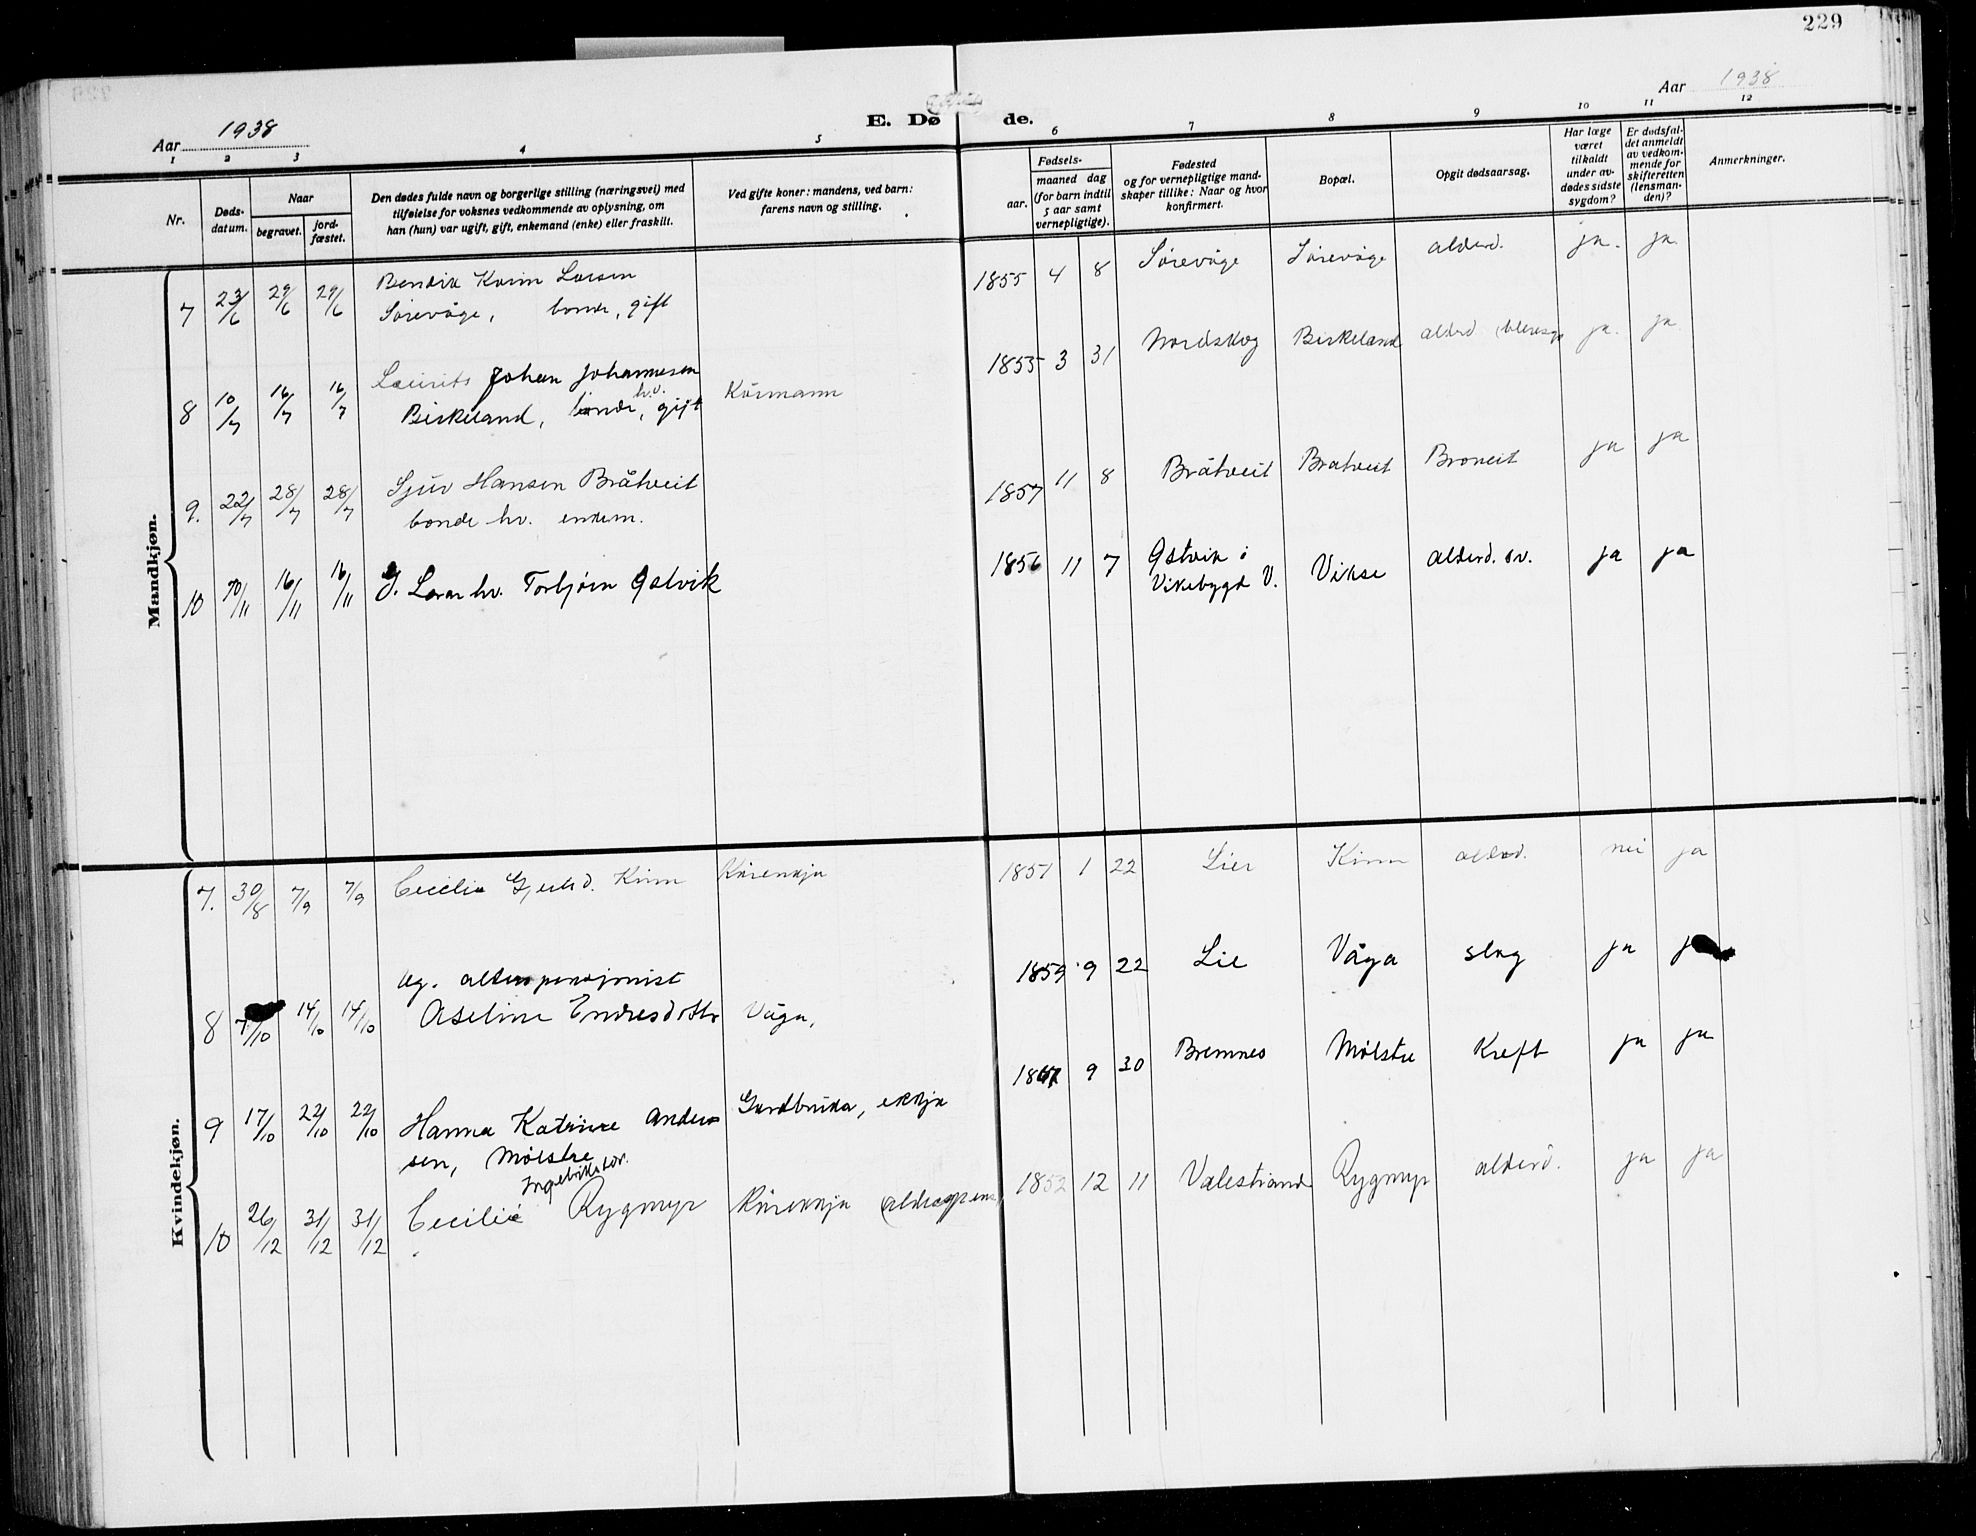 229
Aar 1938
E. Døde.
Aar 1938
1 2 3 4 5 6 7 8 9 10 11 12
Nr.
Døds-
datum.
Naar
begravet.
jord-
fæstet.
Den dødes fulde navn og borgerlige stilling (næringsvei) med
tilføielse for voksnes vedkommende av oplysning, om
han (hun) var ugift, gift, enkemand (enke) eller fraskilt.
Ved gifte koner: mandens, ved barn:
farens navn og stilling.
Fødsels-
aar.
maaned dag
(for barn indtil
5 aar samt
vernepligtige).
Fødested
og for vernepligtige mand-
skaper tillike: Naar og hvor
konfirmert.
Bopæl.
Opgit dødsaarsag.
Har læge
været
tilkaldt
under av-
dødes sidste
sygdom?
Er dødsfal-
det anmeldt
av vedkom-
mende for
skifteretten
(lensman-
den)?
Anmerkninger.
Mandkjøn.
7 23/6 29/6 29/6 Larsen
Sørevåge, bonde, gift
1855 4 8 Sørevåge Sørevåge alderd. ja. ja.
8 10/7 16/7 16/7 Johan Johannesen
Birkeland, hv. gift Kårmann
1855 3 31 Nordskog Birkeland alderd ja. ja
9. 22/7 28/7 28/7 Sjur Hansen Bråtveit
bonde hv. enkem.
1857 11 8 Bråtveit Bratveit Bronkit ja ja
10 10/11 16/11 16/11 hv. Torbjørn Østvik
1856 11 7 Østvik i
Vikebygd V. Vikse alderd. sv. ja ja
Kvindekjøn.
7. 30/8 7/9 7/9 Cecilie Kinn Kårenkja
1851 1 22 Lier Kinn alderd. nei ja
8 7/10 14/10 14/10 ug. alderspensjonist
Aseline Endresdottr Våga,
1859 9 22 Lie Våga slag ja ja
9 17/10 22/10 22/10 Hanna Katrine Ander
sen, Mølstre Gardbruka, ekkja
9 30 Bremnes Mølstre Kreft ja ja
10 26/12 31/12 31/12 Cecilie Rygmyr Kårenkja
1852 12 11 Valestrand Rygmyr alderd. ja ja